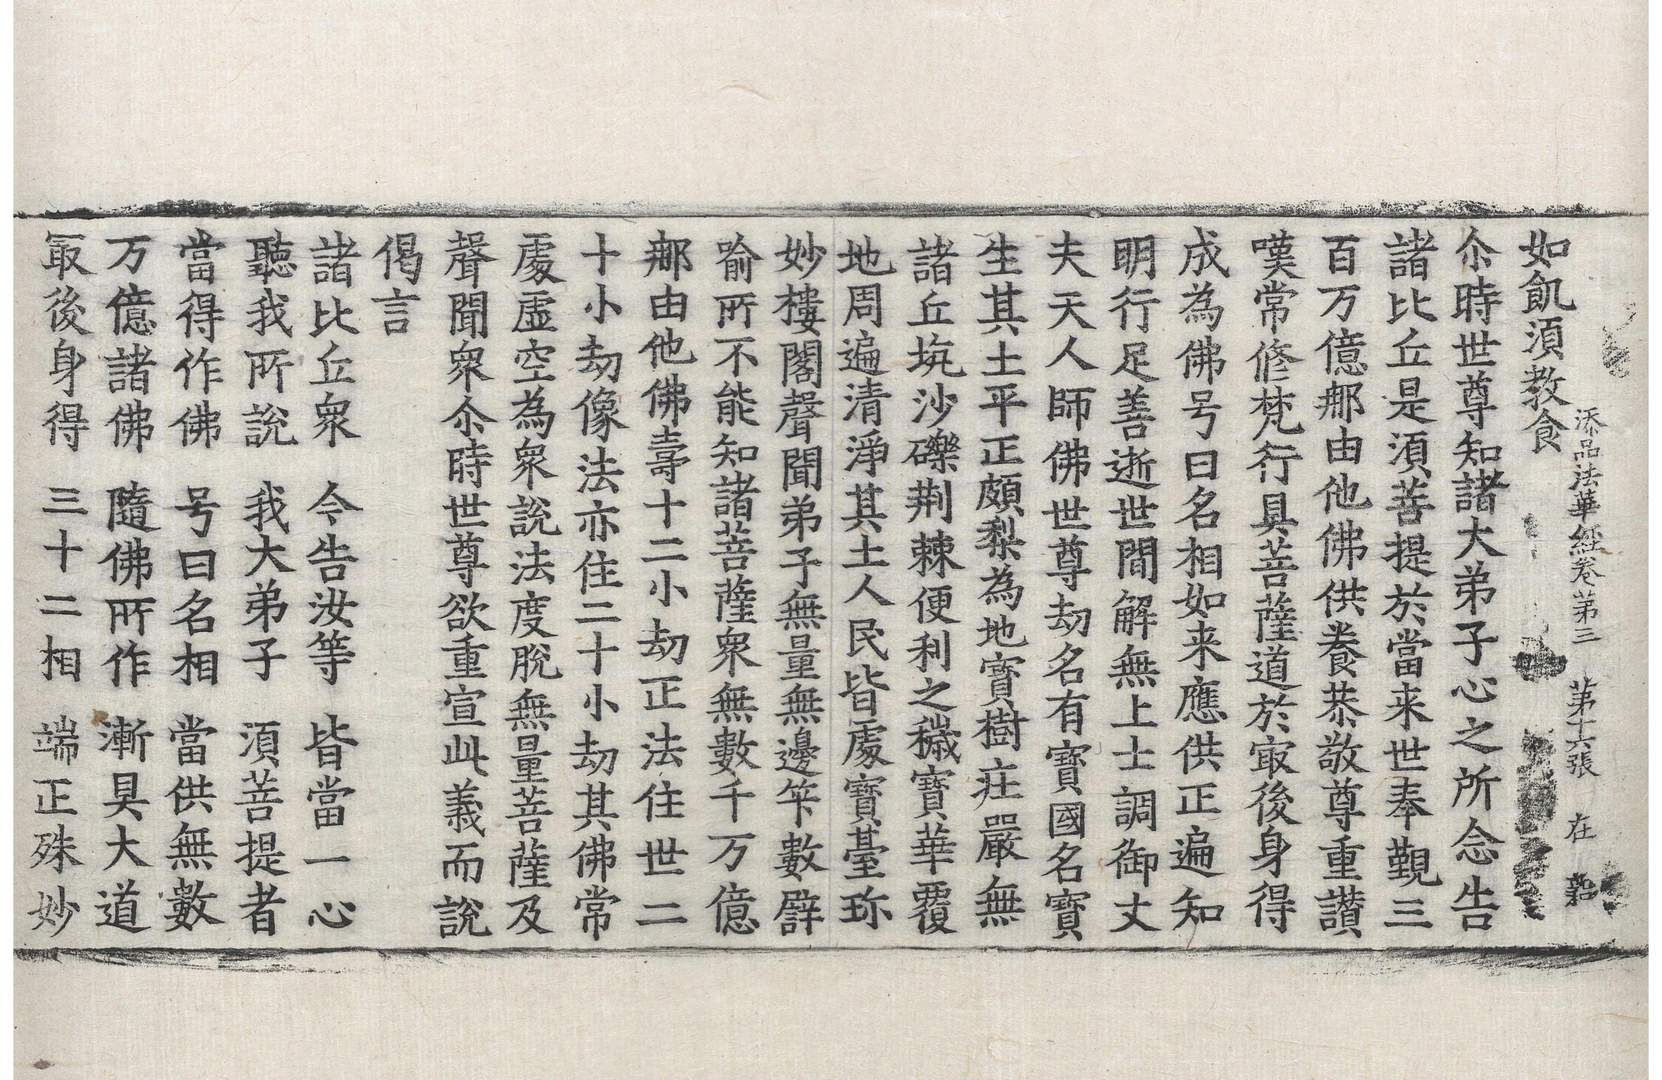 添品法華經卷第三 第十六張 在
如飢須教食
尒時世尊知諸大弟子心之所念告
諸比丘是須菩提於當来世奉覲三
百万億那由他佛供養恭敬尊重讃
嘆常修梵行具菩薩道於㝡後身得
成為佛号曰名相如来應供正遍知
明行足善逝世間解無上士調御丈
夫天人師佛世尊劫名有寶國名寶
生其土平正頗梨為地寶樹莊嚴無
諸丘坑沙礫荆棘便利之穢寶華覆
地周遍清淨其土人民皆處寶臺珎
妙樓閣聲聞弟子無量無邊笇數譬
喻所不能知諸菩薩衆無數千万億
那由他佛壽十二小劫正法住世二
十小劫像法亦住二十小劫其佛常
處虛空為衆說法度脫無量菩薩及
聲聞衆尒時世尊欲重宣此義而說
偈言
諸比丘衆 今告汝等 皆當一心
聽我所說 我大弟子 須菩提者
當得作佛 号曰名相 當供無數
万億諸佛 隨佛所作 漸具大道
㝡後身得 三十二相 端正殊妙